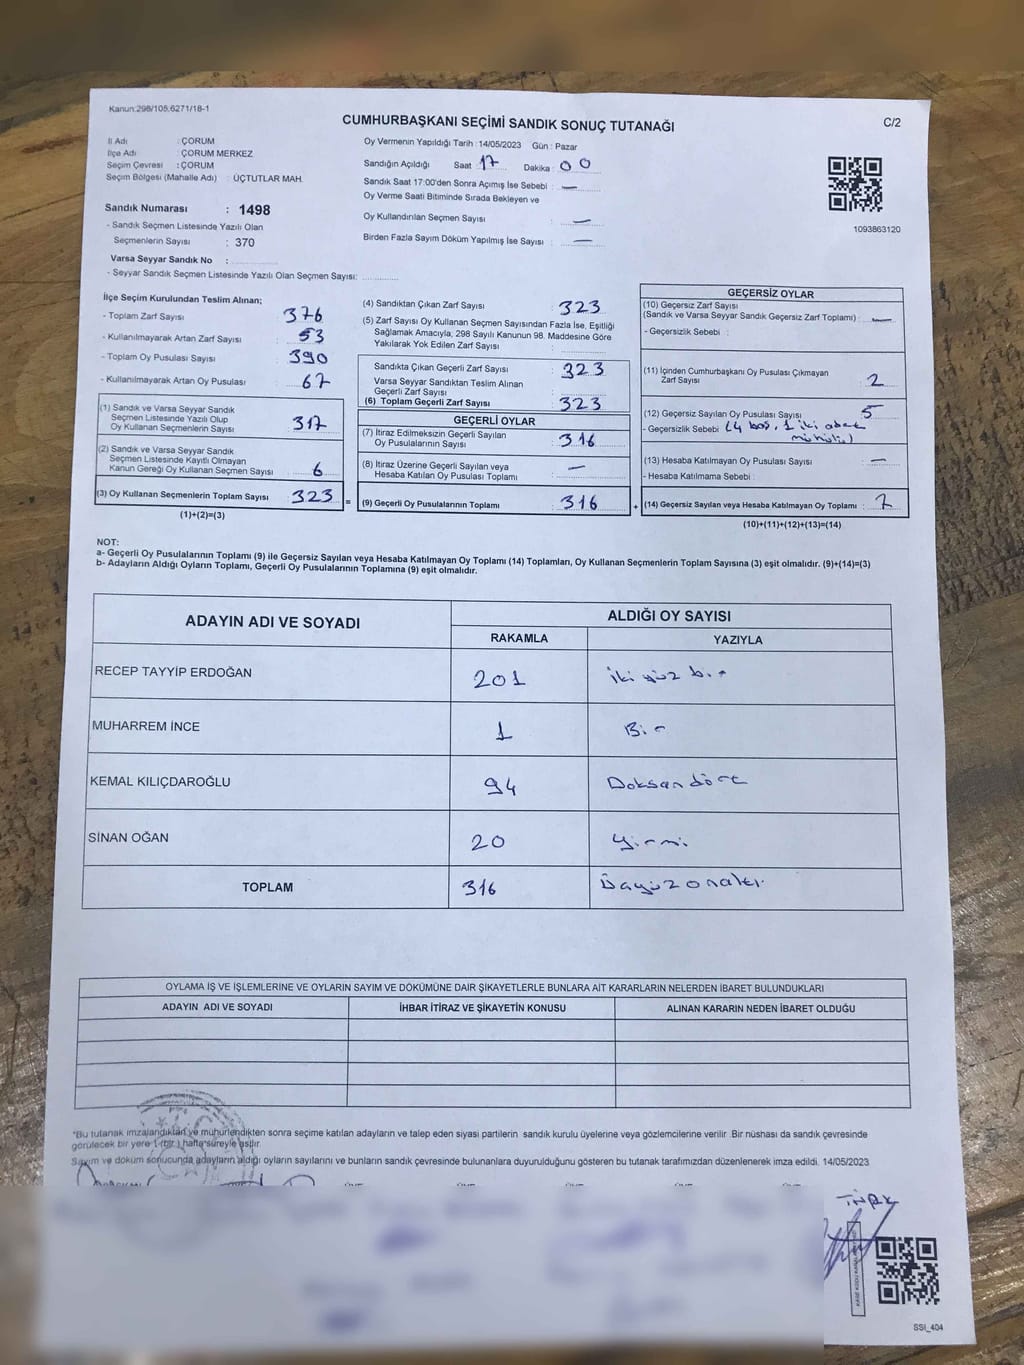 Kanun:298/105,6271/18-1
CUMHURBAŞKANI SEÇİMİ SANDIK SONUÇ TUTANAĞI
C/2
İl Adı : ÇORUM
İlçe Adı : ÇORUM MERKEZ
Seçim Çevresi : ÇORUM
Seçim Bölgesi (Mahalle Adı) : ÜÇTUTLAR MAH.
Sandık Numarası : 1498
- Sandık Seçmen Listesinde Yazılı Olan
Seçmenlerin Sayısı : 370
Varsa Seyyar Sandık No :
- Seyyar Sandık Seçmen Listesinde Yazılı Olan Seçmen Sayısı:
Oy Vermenin Yapıldığı Tarih : 14/05/2023 Gün : Pazar
Sandığın Açıldığı Saat 17 Dakika : 00
Sandık Saat 17:00'den Sonra Açımış İse Sebebi : —
Oy Verme Saati Bitiminde Sırada Bekleyen ve
Oy Kullandırılan Seçmen Sayısı : —
Birden Fazla Sayım Döküm Yapılmış İse Sayısı : —
1093863120
İlçe Seçim Kurulundan Teslim Alınan;
- Toplam Zarf Sayısı : 376
- Kullanılmayarak Artan Zarf Sayısı : 53
- Toplam Oy Pusulası Sayısı : 390
- Kullanılmayarak Artan Oy Pusulası : 67
(1) Sandık ve Varsa Seyyar Sandık
Seçmen Listesinde Yazılı Olup
Oy Kullanan Seçmenlerin Sayısı : 317
(2) Sandık ve Varsa Seyyar Sandık
Seçmen Listesinde Kayıtlı Olmayan
Kanun Gereği Oy Kullanan Seçmen Sayısı : 6
(3) Oy Kullanan Seçmenlerin Toplam Sayısı : 323 =
(1)+(2)=(3)
(4) Sandıktan Çıkan Zarf Sayısı : 323
(5) Zarf Sayısı Oy Kullanan Seçmen Sayısından Fazla İse, Eşitliği
Sağlamak Amacıyla, 298 Sayılı Kanunun 98. Maddesine Göre
Yakılarak Yok Edilen Zarf Sayısı :
Sandıkta Çıkan Geçerli Zarf Sayısı : 323
Varsa Seyyar Sandıktan Teslim Alınan
Geçerli Zarf Sayısı :
(6) Toplam Geçerli Zarf Sayısı : 323
GEÇERLİ OYLAR
(7) İtiraz Edilmeksizin Geçerli Sayılan
Oy Pusulalarının Sayısı : 316
(8) İtiraz Üzerine Geçerli Sayılan veya
Hesaba Katılan Oy Pusulası Toplamı : —
(9) Geçerli Oy Pusulalarının Toplamı : 316 +
GEÇERSİZ OYLAR
(10) Geçersiz Zarf Sayısı
(Sandık ve Varsa Seyyar Sandık Geçersiz Zarf Toplamı) : —
- Geçersizlik Sebebi :
(11) İçinden Cumhurbaşkanı Oy Pusulası Çıkmayan
Zarf Sayısı : 2
(12) Geçersiz Sayılan Oy Pusulası Sayısı : 5
- Geçersizlik Sebebi (4 boş, 1 iki adet
mühürlü)
(13) Hesaba Katılmayan Oy Pusulası Sayısı : —
- Hesaba Katılmama Sebebi :
(14) Geçersiz Sayılan veya Hesaba Katılmayan Oy Toplamı : 7
(10)+(11)+(12)+(13)=(14)
NOT:
a- Geçerli Oy Pusulalarının Toplamı (9) ile Geçersiz Sayılan veya Hesaba Katılmayan Oy Toplamı (14) Toplamları, Oy Kullanan Seçmenlerin Toplam Sayısına (3) eşit olmalıdır. (9)+(14)=(3)
b- Adayların Aldığı Oyların Toplamı, Geçerli Oy Pusulalarının Toplamına (9) eşit olmalıdır.
ADAYIN ADI VE SOYADI
ALDIĞI OY SAYISI
RAKAMLA YAZIYLA
RECEP TAYYİP ERDOĞAN 201 iki yüz bir
MUHARREM İNCE 1 Bir
KEMAL KILIÇDAROĞLU 94 Doksandört
SİNAN OĞAN 20 yirmi
TOPLAM 316 Üçyüzonaltı
OYLAMA İŞ VE İŞLEMLERİNE VE OYLARIN SAYIM VE DÖKÜMÜNE DAİR ŞİKAYETLERLE BUNLARA AİT KARARLARIN NELERDEN İBARET BULUNDUKLARI
ADAYIN ADI VE SOYADI İHBAR İTİRAZ VE ŞİKAYETİN KONUSU ALINAN KARARIN NEDEN İBARET OLDUĞU
*Bu tutanak imzalandıktan ve mühürlendikten sonra seçime katılan adayların ve talep eden siyasi partilerin sandık kurulu üyelerine veya gözlemcilerine verilir .Bir nüshası da sandık çevresinde
görülecek bir yere 1 (bir ) hafta süreyle asılır.
Sayım ve döküm sonucunda adayların aldığı oyların sayılarını ve bunların sandık çevresinde bulunanlara duyurulduğunu gösteren bu tutanak tarafımızdan düzenlenerek imza edildi. 14/05/2023
SSI_404